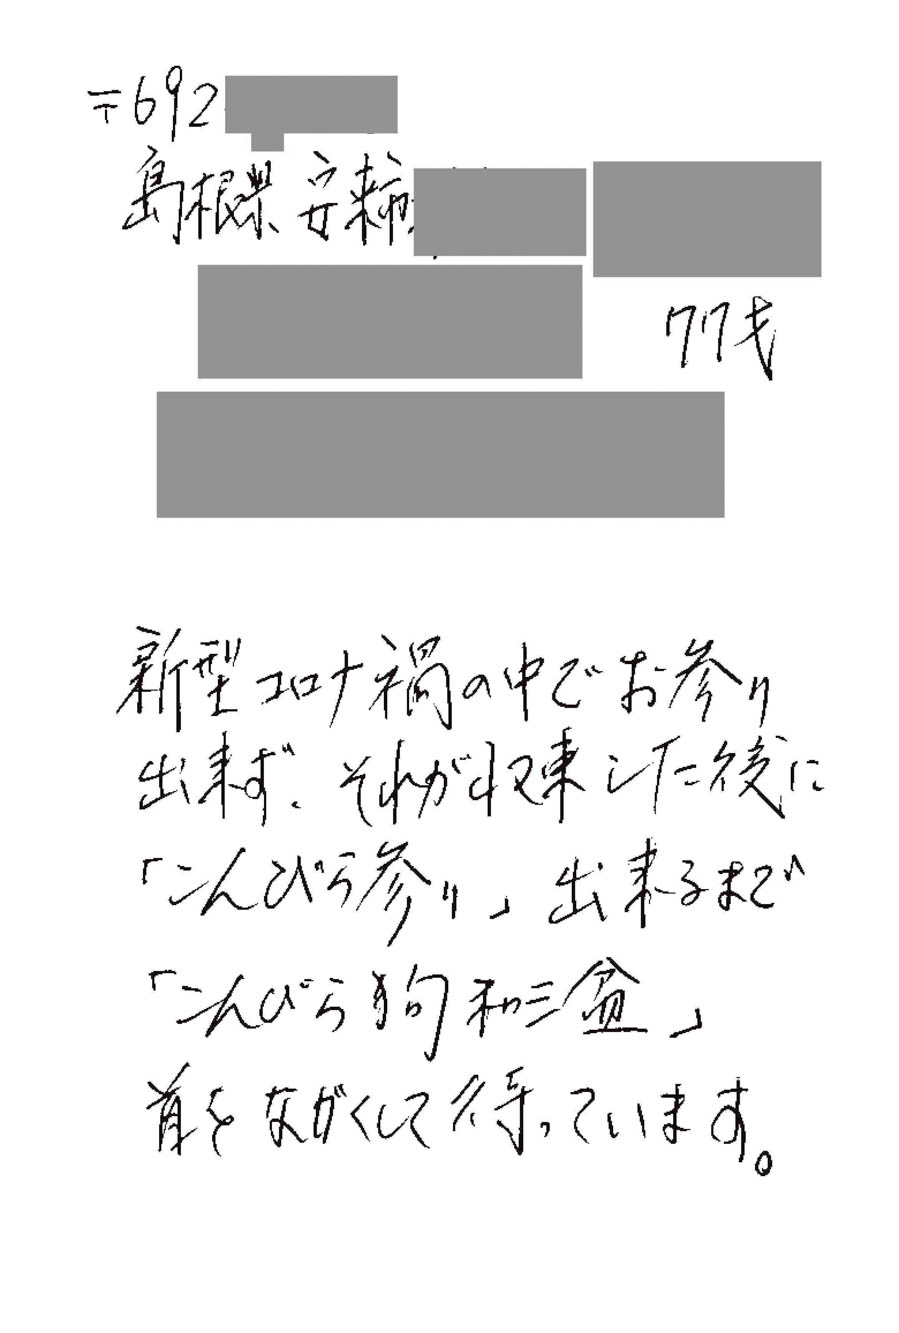 〒692
島根県安来市
77才
新型コロナ禍の中でお参り
出来ず、それが収束した後に
「こんぴら参り」出来るまで
「こんぴら狗和三盆」
首をながくして待っています。